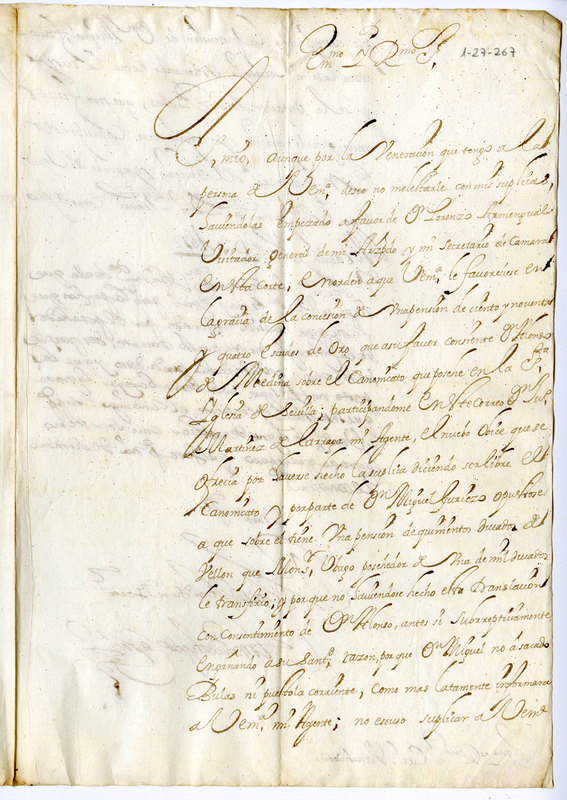 Emmo y Rmo Sr,
1-27-267
Sr mio, aunque por la Veneracion que tengo a la
persona de V Ema, deseo no molestarle con mis suplicas,
haviendolas empezado a favor de Dn Lorenzo Armengual
Visitador general de mi Arzpdo y mi Secretario de Camara
en esta Corte, en orden a que V Ema, le favoreciese en
la gracia de la concesion de una pension de ciento y noventa
y quatro Escudos de Oro, que a su favor consiente Dn Alonso
de Medina sobre el Canonicato que posehe en la Sta
Iglesia de Sevilla; participandome en este Correo Dn
Martinez de la rraga mi Agente, el nuebo Obice que se
ofrecia por haverse hecho la suplica diciendo ser libre el
Canonicato y por parte de Dn Miguel oponerse
a que sobre el tiene una pension de quinientos ducados de
Vellon que Monsr, posehedor de una de mil ducados
le transfirio; y por que no haviendose hecho esta translacion
con consentimiento de Dn Alonso, antes si subrreptivamente,
engañando a su Santd, razon, porque Dn Miguel no á sacado
Bulas ni puestola corriente, como mas latamente informara
a V Ema, mi Agente; no escuso suplicar a V Ema